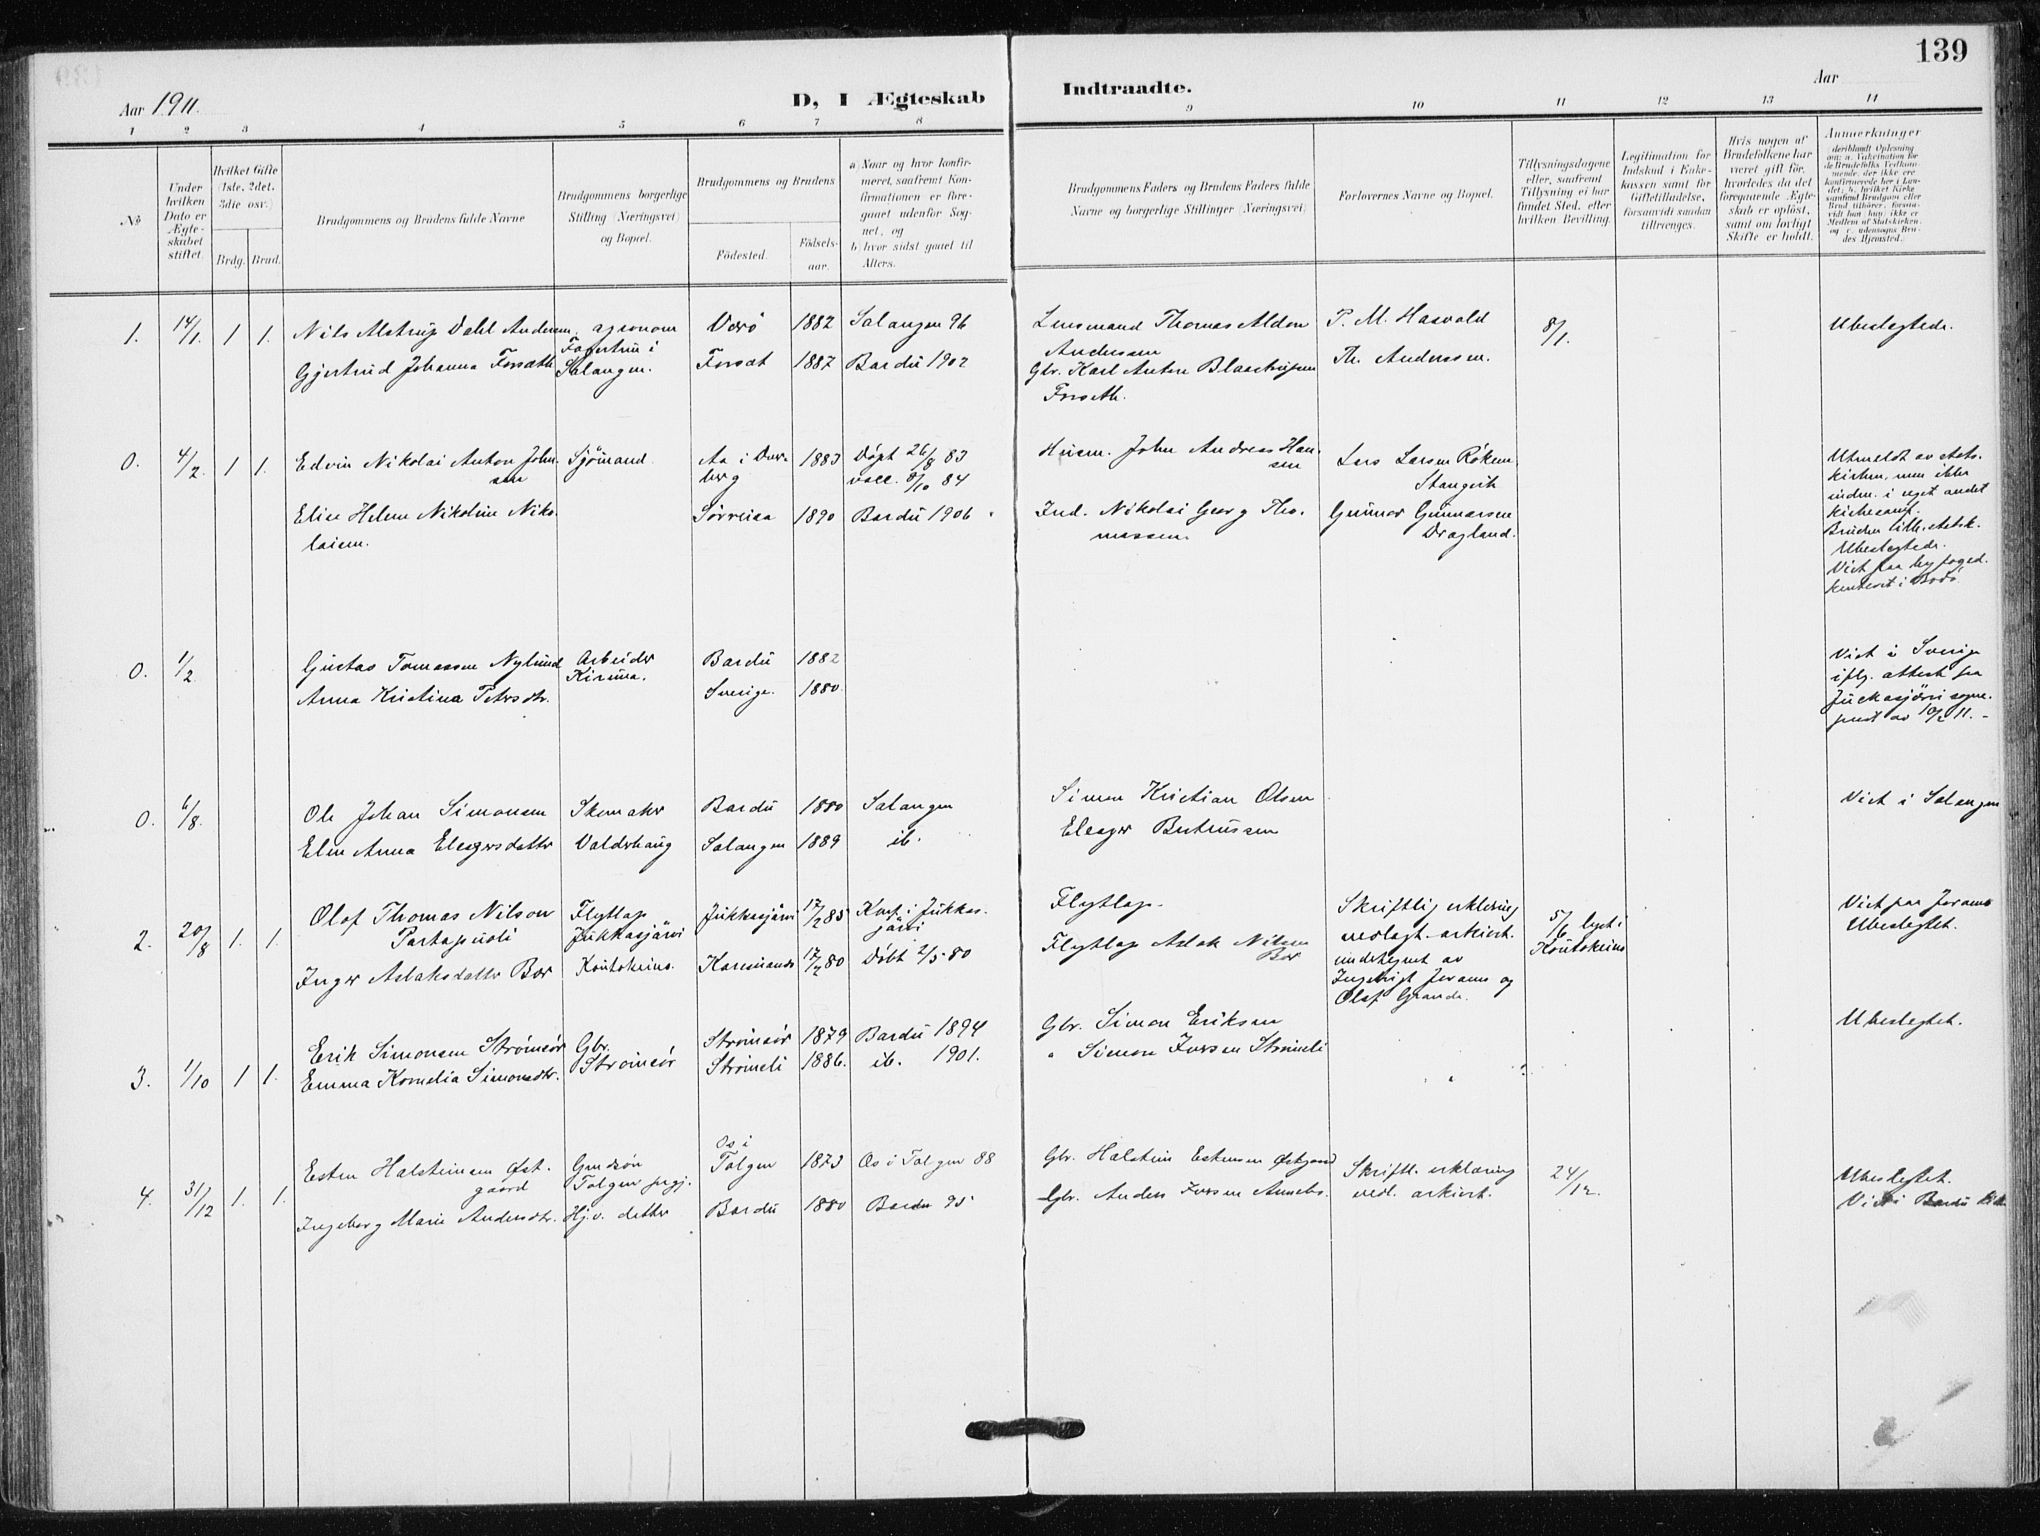 139
Aar 1911.
D, I Ægteskab Indtraadte.
Aar
1 2 3 4 5 6 7 8 9 10 11 12 13 14
No
Under hvilken Dato er Ægteskabet stiftet.
Hvilket Gifte (1ste, 2det, 3die osv.)
Brdg. Brud.
Brudgommens og Brudens fulde Navne
Brudgommens borgerlige Stilling (Næringsvei) og Bopæl.
Brudgommens og Brudens
Födested. Födselsaar.
a) Naar og hvor konfirmeret, saafremt Konfirmationen er foregaaet udenfor Sognet, og
b) hvor sidst gaaet til Alters.
Brudgommens Faders og Brudens Faders fulde Navne og borgerlige Stillinger (Næringsvei)
Forlovernes Navne og Bopæl.
Tillysningsdagene eller, saafremt Tillysning ei har fundet Sted, efter hvilken Bevilling.
Legitimation for Indskud i Enkekassen samt for Giftetilladelse, forsaavidt saadan tiltrænges.
Hvis nogen af Brudefolkene har været gift før, hvorledes da det foregaaende Ægteskab er opløst, samt om lovligt Skifte er holdt.
Anmerkninger
(deriblandt Oplysning om: a. Vakcination for de Brudefolks Vedkommende, der ikke ere konfirmerede her i Landet; b. hvilket Kirkesamfund Brudgom eller Brud tilhører, forsaavidt han (hun) ikke er Medlem af Statskirken, og c. udensogns Brudes Hjemsted.)
1. 14/1. 1 1. Nils Alstrup Dahl Andersen, agronom Værö 1882 Salangen 96 Lensmand Thomas Aldon Andersen P. M. Hasvold 8/1. Ubeslegtede.
Gjertrud Johanna Forseth Fagertun i Salangen. Forset 1887 Bardu 1902 Gbr. Karl Anton Blaastrupsen Forseth. Th. Anderssen.
0. 4/2. 1 1. Edvin Nikolai Anton Johnsen Sjömand. Aa i Dverberg 1883 Döpt 26/8 83 vacc. 9/10 84 Husm. John Andreas Hansen Lars Larsen Röken Stangvik
Elise Helene Nikoline Nikolaisen. Sörreisa 1890 Bardu 1906 Ind. Nikolai Georg Thomassen. Gunnar Gunnarsen Dragland.
Utmeldt av statskirken, men ikke inden. i eget andet kirkesamf.
Bruden tilh. statsk.
Ubeslegtede.
Viet paa byfogedkontoret i Bodö.
0. 1/2 Gustav Tomassen Nylund Arbeider Kiruna. Bardu 1882
Anna Kristina Petersdtr. Sverige. 1880.
Viet i Sverige iflg. attest fra Juckasjärvi sogneprest av 10/2 11.
0. 6/8. Ole Johan Simonsen Skomaker Bardu 1880 Salangen Simon Kristian Olsen Viet i Salangen
Elen Anna Eleasersdatter Valderhaug Salangen 1889 ib. Eleaser Berteussen
2. 20/8 1. 1. Olof Thomas Nilson Partapuoli Flytlap Jukkasjärvi Jukkasjärvi 17/2 85 Konf. i Jukkasjärvi Flytlap. Skriftlig erklæring vedlagt arkivet. undertegnet av Ingebrigt Jevams og Olaf Grande. 5/6 lyst i Koutokeino Viet paa Jevams Ubeslegtet.
Inger Aslaksdatter Bær Koutokeino. Karesuando 17/2 80 Döbt 2/5 80 Flytlap Aslak Nilsen Bær
3. 1/10 1 1. Erik Simonsen Strömsör Gbr. Strömsör Strömsör 1879 Bardu 1894 Gbr. Simon Eriksen Ubeslegtet.
Emma Kornelia Simonsdtr. Strömeli 1886. ib. 1901. " Simon Iversen Strömeli
4. 31/12 1. 1. Esten Halsteinsen Østgaard Grndsön Tolgen prgj. Os i Tolgen 1873 Os i Tolgen 88 Gbr. Halstein Estensen Østgaard Skriftl. erklæring vedl. arkivet. 24/12. Ubeslegtet.
Ingeborg Marie Andersdtr. Hj.v. datter Bardu 1880 Bardu 95 Gbr. Anders Iversen Viet i Bardu Kirke